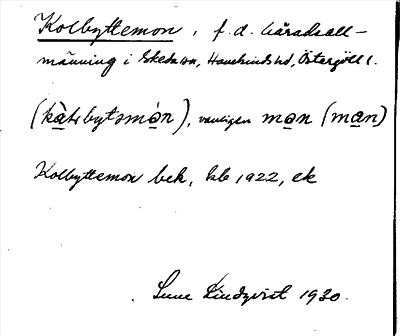 Kolbyttemon, f.d. häradsall-
männing i Skedevi, Hanekinds hd, Östergötl.
(kȧtsbytsmo̱n), vanligen mo̱n (ma̱n)
Kolbyttemon bek, kb 1922, ek
Sune Lindqvist 1930.